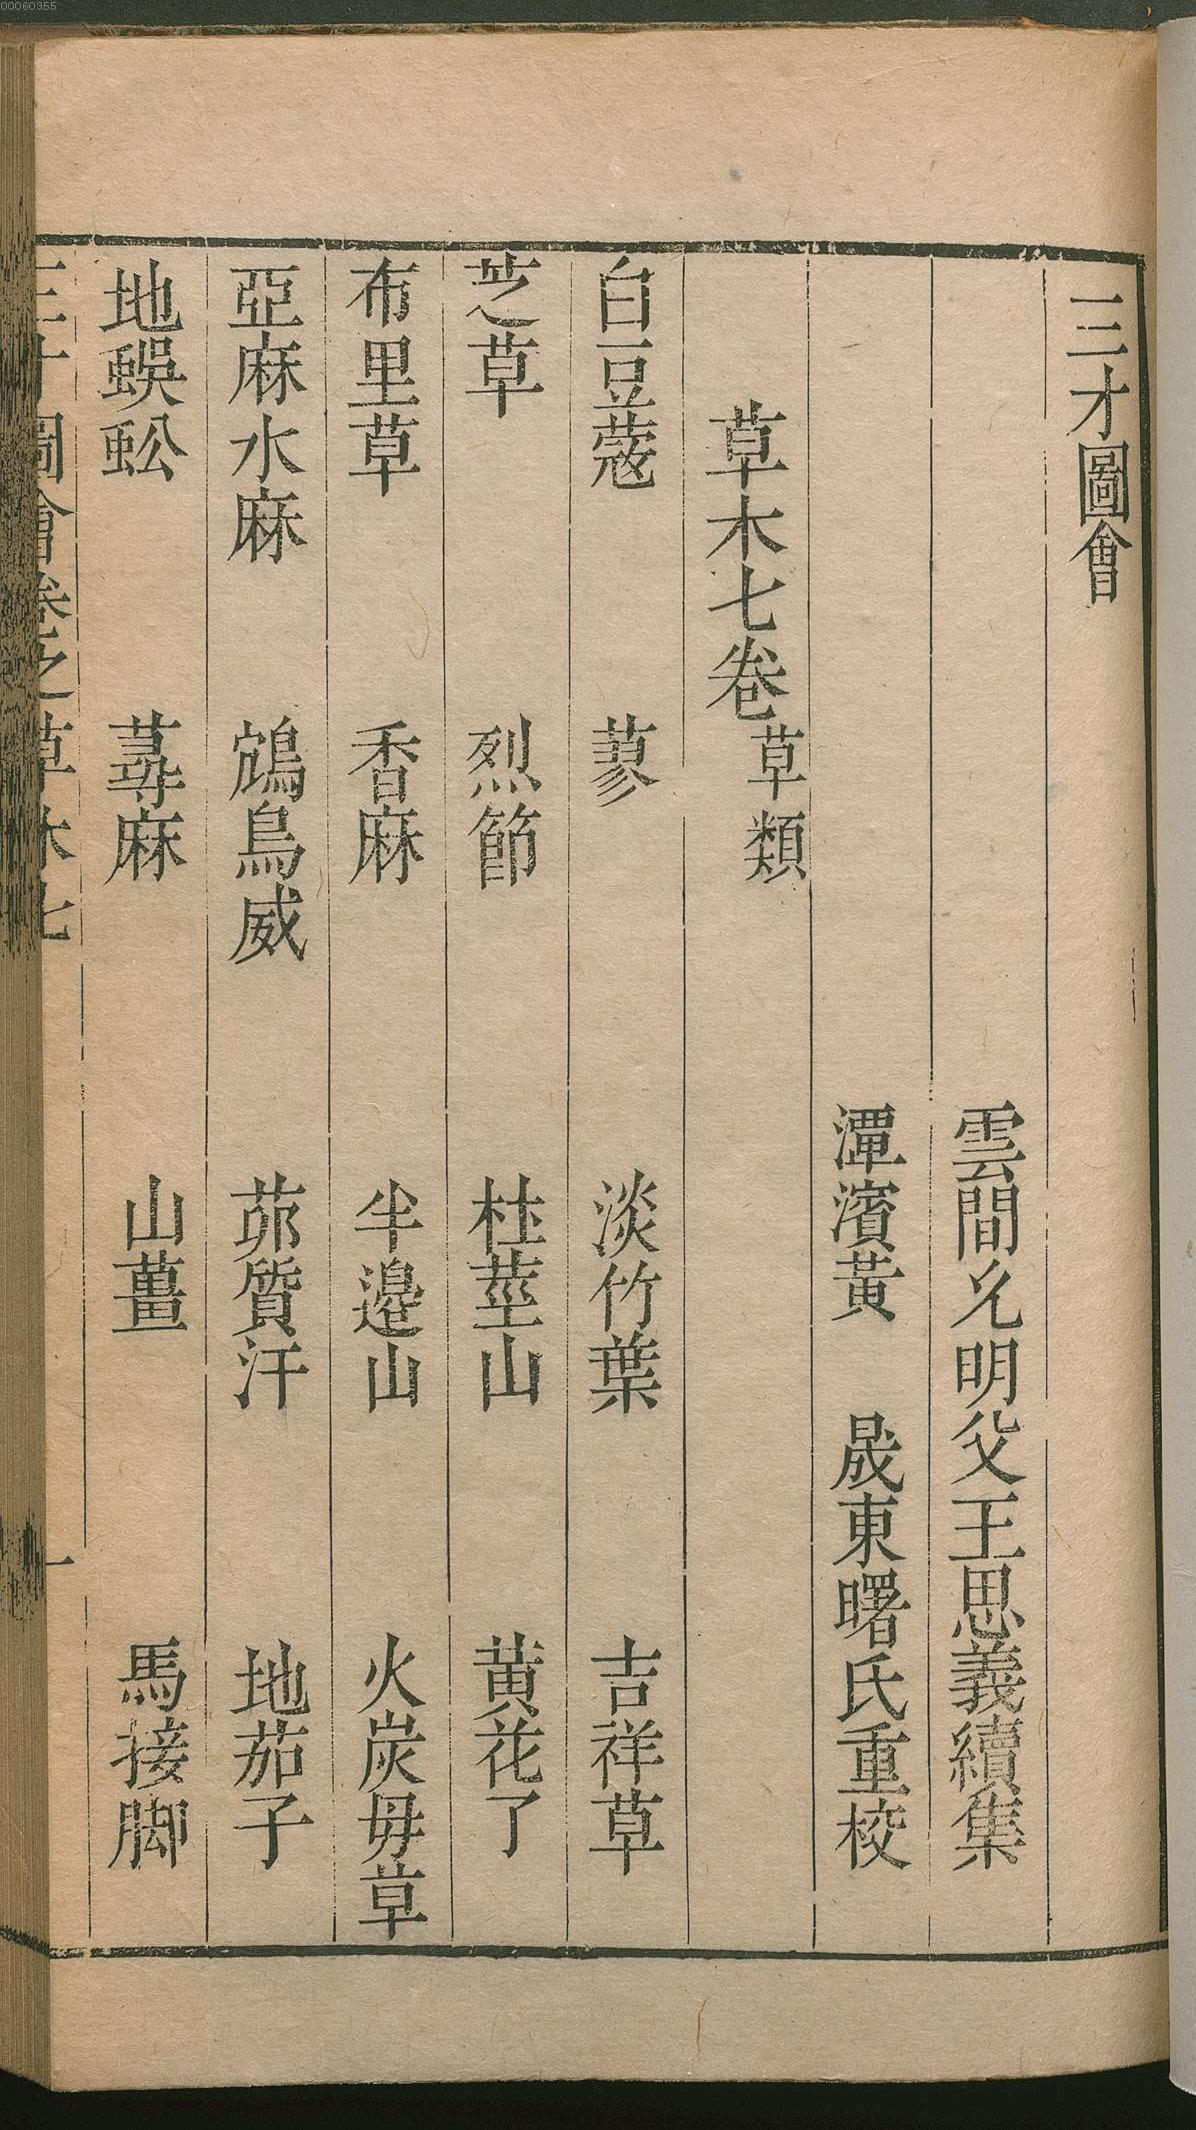 00060355
三才圖會
雲間允明父王思義續集
潭濱黃 晟東曙氏重校
草木七卷 草類
白豆蔻 蓼 淡竹葉 吉祥草
芝草 烈節 杜莖山 黃花了
布里草 香麻 半邊山 火炭毋草
亞麻水麻 鴆鳥威 茆質汗 地茄子
地蜈蚣 蕁麻 山薑 馬接脚
三才圖會卷之草木七 一